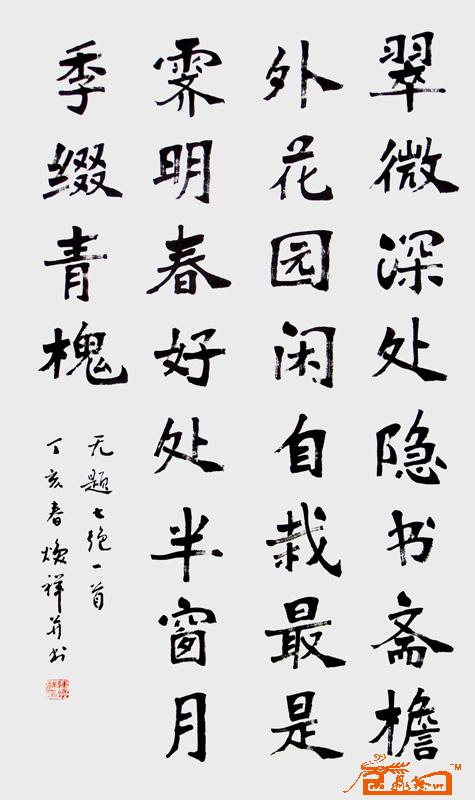 翠微深处隐书斋檐
外花园闲自栽最是
霁明春好处半窗月
季缀青槐
无题七绝一首
丁亥春焕祥并书